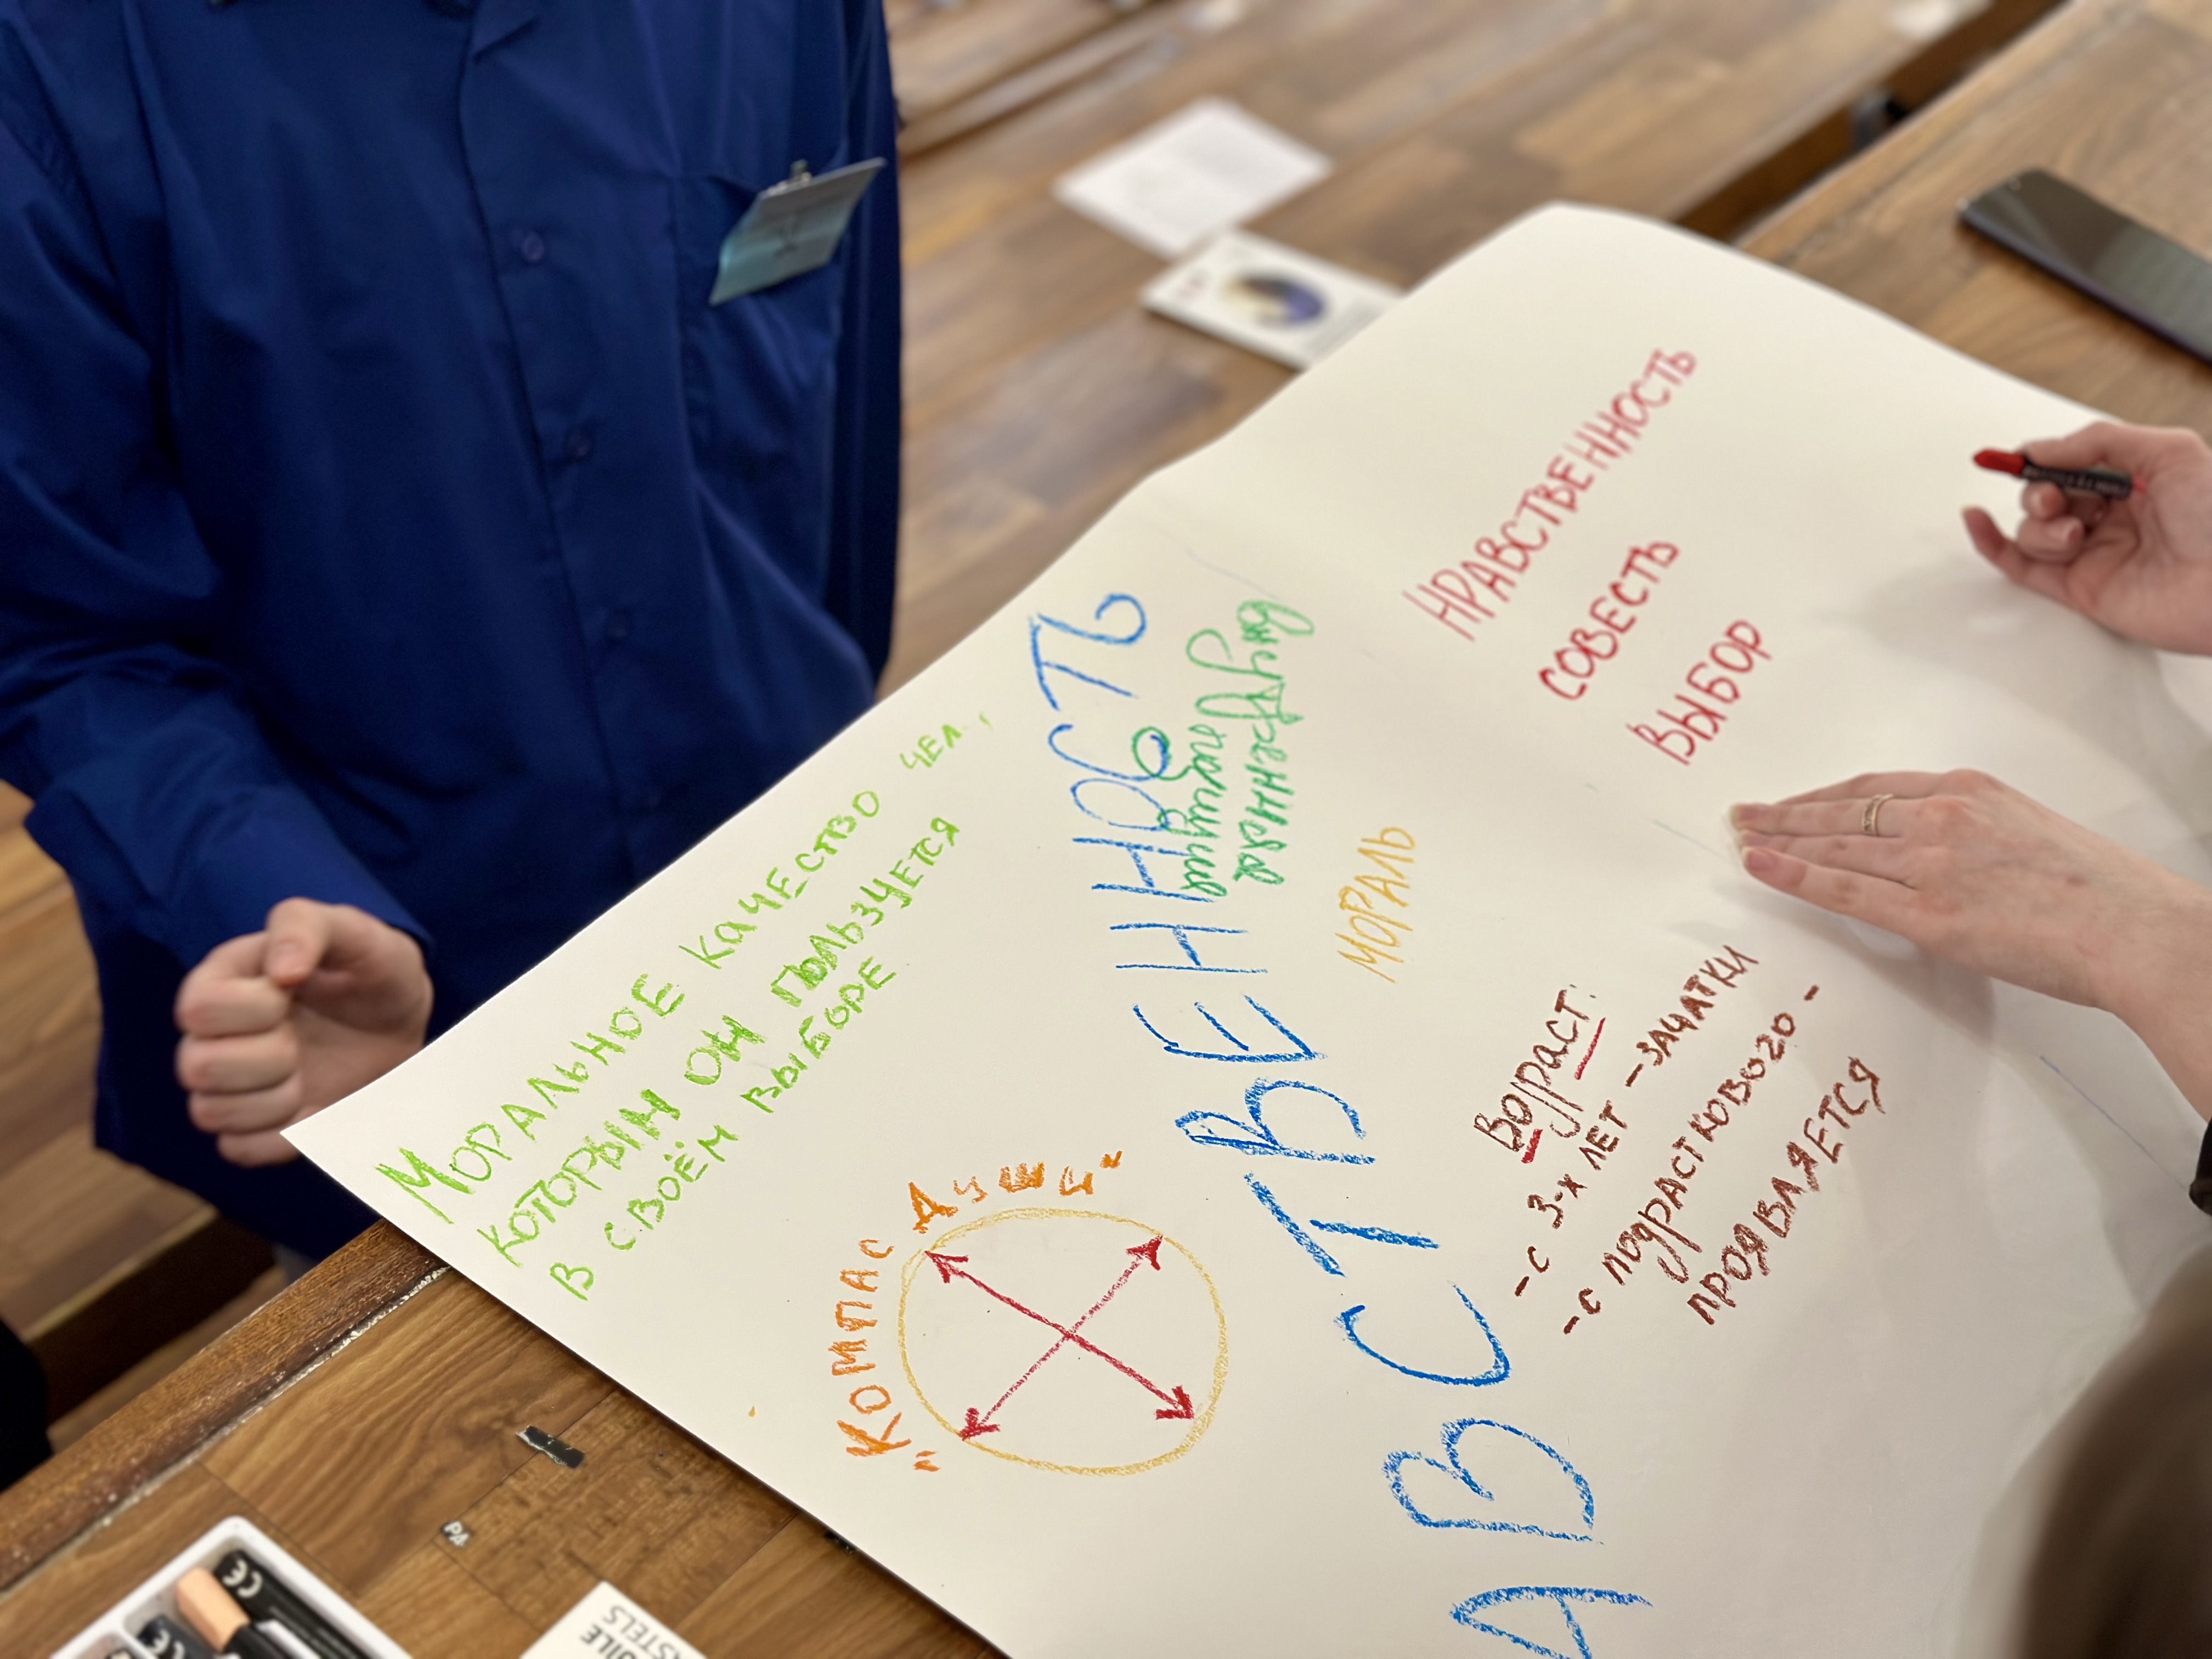 МОРАЛЬНОЕ КАЧЕСТВО ЧЕЛ.,
КОТОРЫМ ОН ПОЛЬЗУЕТСЯ
В СВОЁМ ВЫБОРЕ
"Компас души"
АВСТВЕННОСТЬ
внутренние
МОРАЛЬ
НРАВСТВЕННОСТЬ
СОВЕСТЬ
ВЫБОР
Возраст:
- с 3-х ЛЕТ - ЗАЧАТКИ
- с подрасткового -
ПРОЯВЛЯЕТСЯ
CE
CE